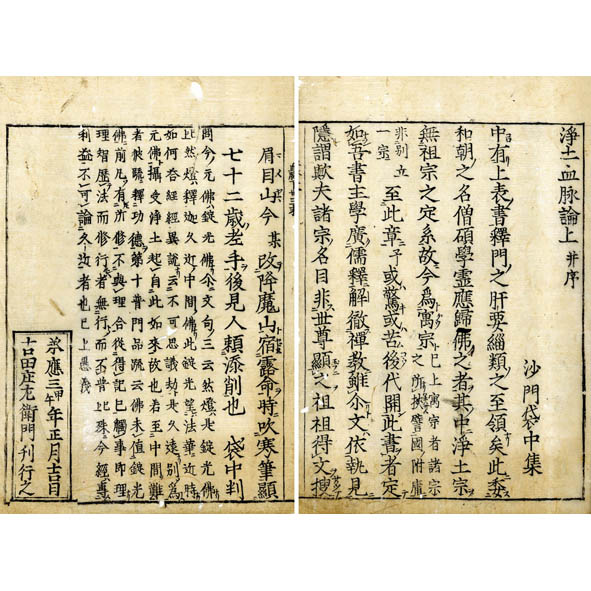 淨土血脉論上 并序
沙門袋中集
中有上表書釋門之肝要緇類之至領矣此
和朝之名僧碩學靈應歸佛之者其中淨土宗
無祖宗之定系故今爲寓宗 已上寓宗者諸宗之所挾譬國附庸
非別立一宗 至此章予或驚或苦後代開此書者定
如吾書主學廣儒釋解徹禪教難尒文依執見
隱謂歟夫諸宗名目非世尊顯之祖祖得文搜
眉目山今某改降魔山宿露命時吹寒筆顯
七十二歲老手後見人頼添削也 袋中判
問今元佛錠光佛尒文句三云然燈是錠光佛
然燈釋迦久近中間佛此錠光望法華近時
如何答經經異説云不可思議劫是久遠別爲
元佛攝受淨土起自此如來故也若至中間難
者披曉釋功德第十普門品疏云佛未值錠光
佛前凡有所修不與理合後得記已觸事即理
理智歷法而修行者無行而不普比殊今經尊
利益不可論久近者也已上愚義
承應三甲午年正月吉日
吉田庄左衛門刊行之